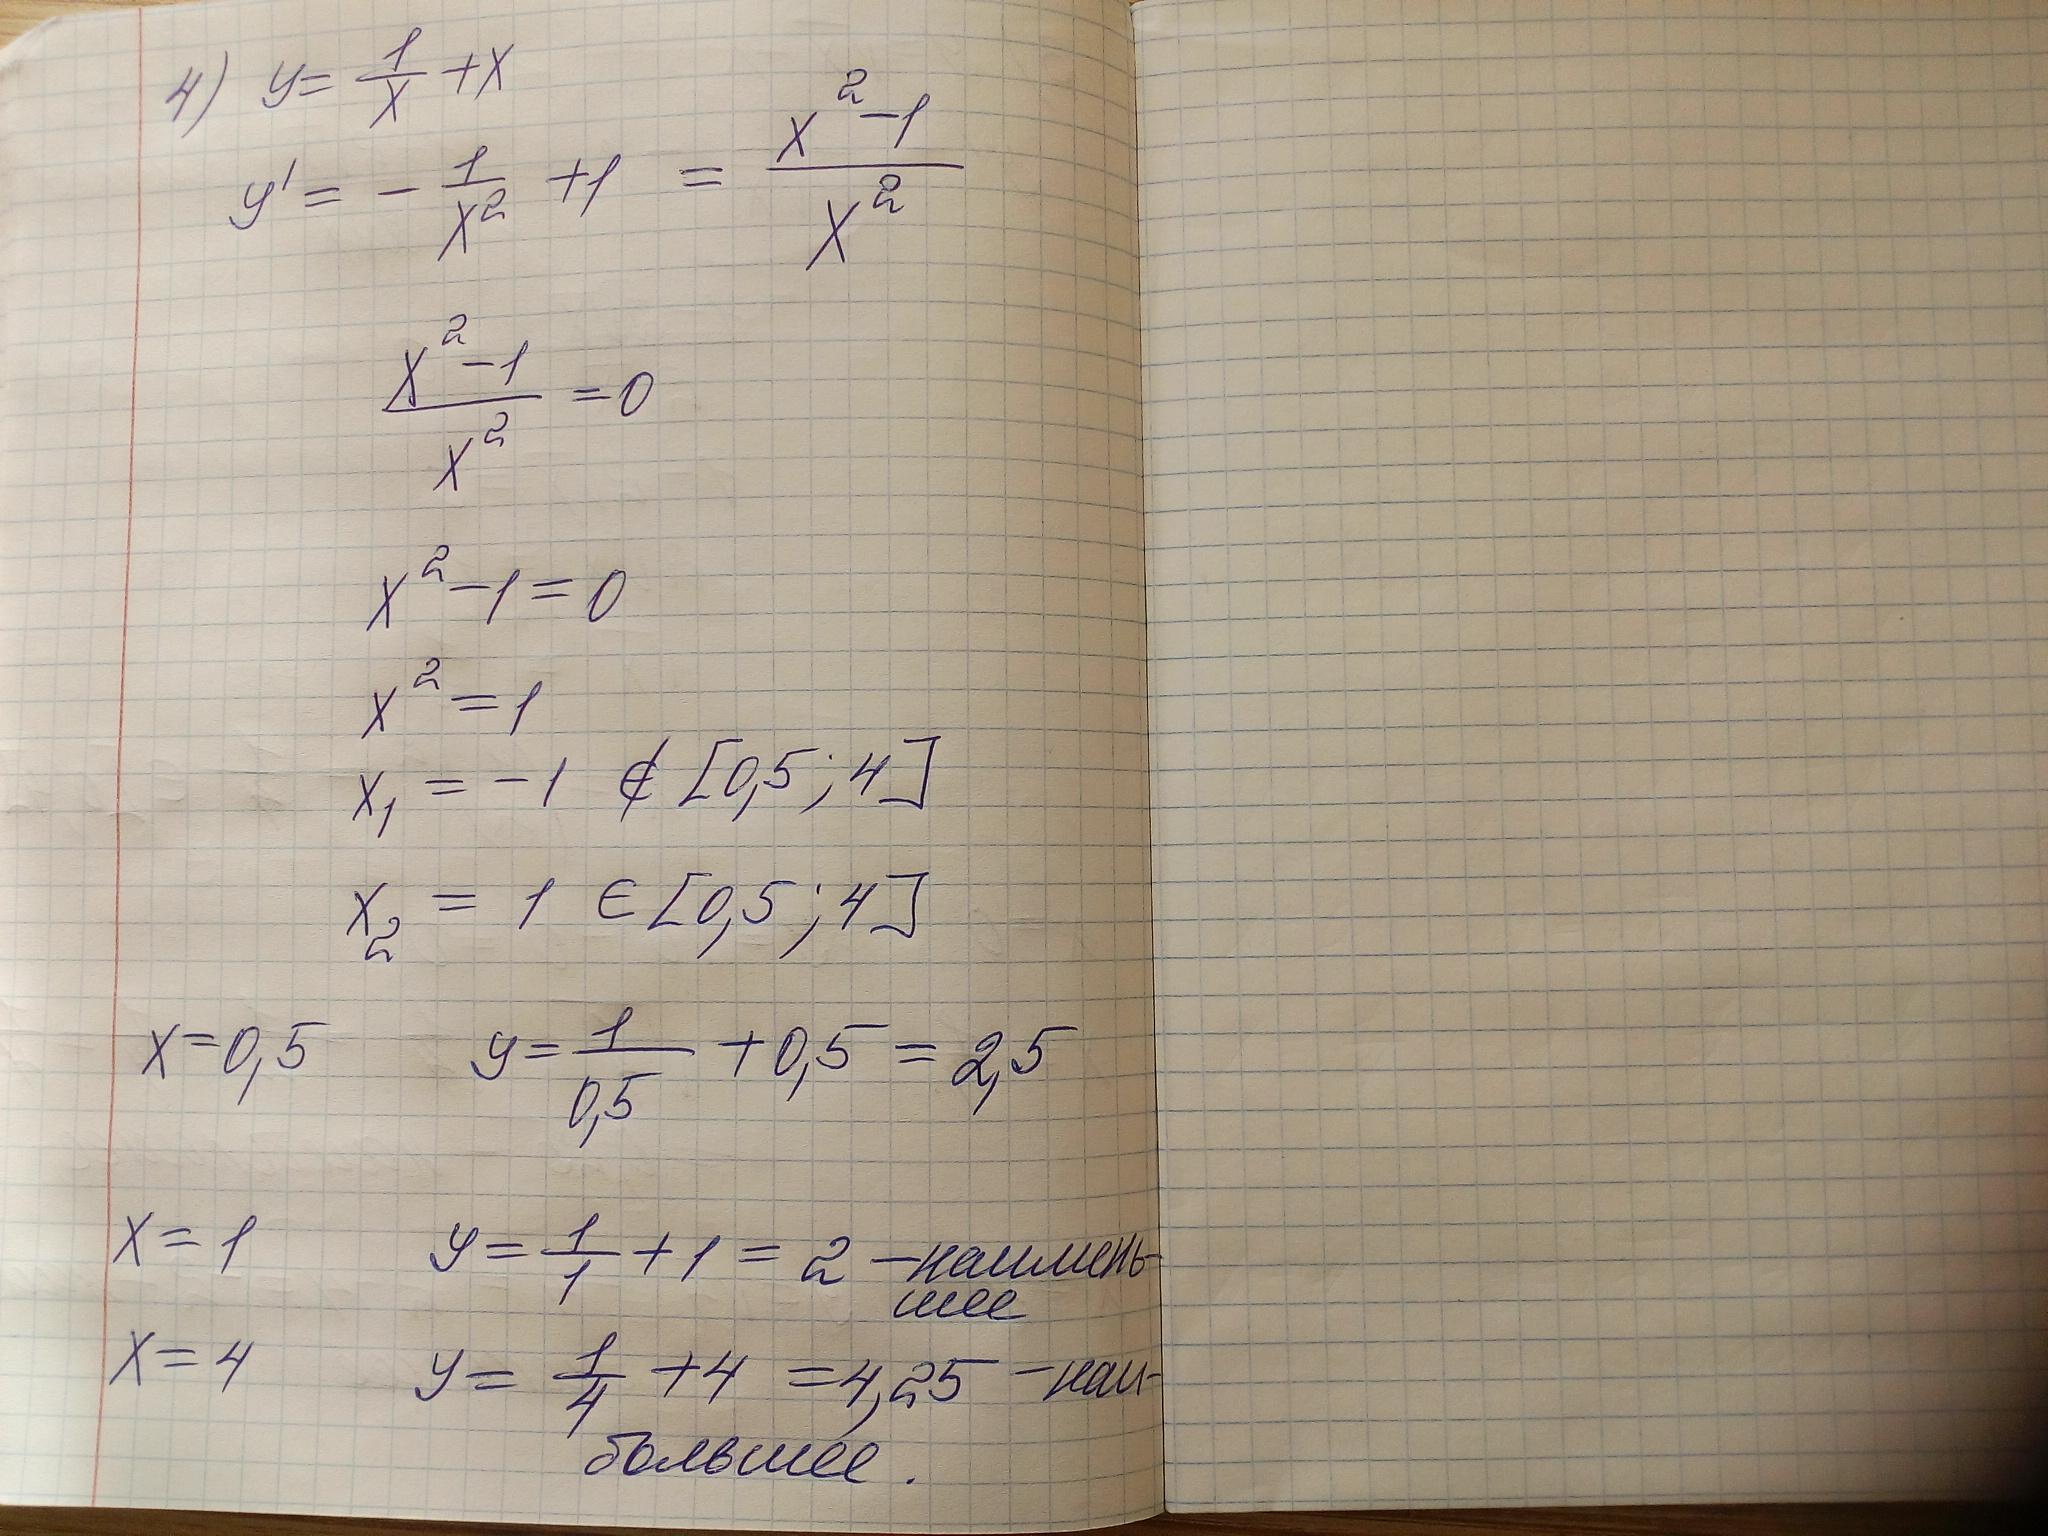 4) y = 1/x + x
y' = - 1/x² + 1 = (x² - 1)/x²
(x² - 1)/x² = 0
x² - 1 = 0
x² = 1
x₁ = -1 ∉ [0,5; 4]
x₂ = 1 ∈ [0,5; 4]
x = 0,5 y = 1/0,5 + 0,5 = 2,5
x = 1 y = 1/1 + 1 = 2 - наимень-
шее
x = 4 y = 1/4 + 4 = 4,25 - наи-
большее.